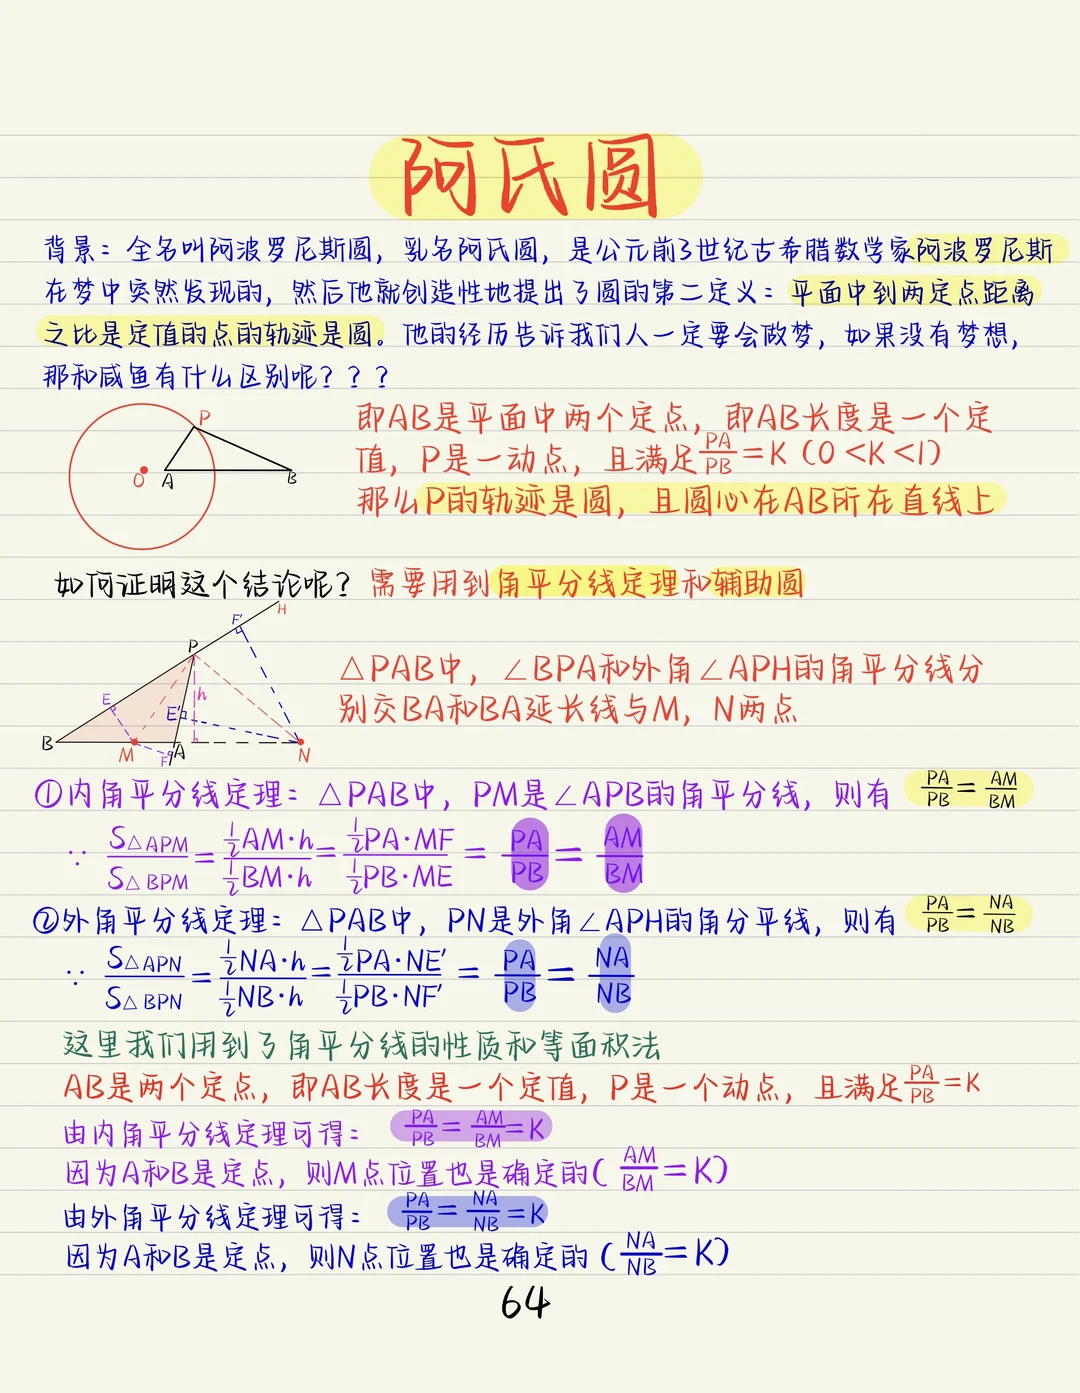 阿氏圆
背景：全名叫阿波罗尼斯圆，乳名阿氏圆，是公元前3世纪古希腊数学家阿波罗尼斯
在梦中突然发现的，然后他就创造性地提出了圆的第二定义：平面中到两定点距离
之比是定值的点的轨迹是圆。他的经历告诉我们人一定要会做梦，如果没有梦想，
那和咸鱼有什么区别呢？？？
P
O
A
B
即AB是平面中两个定点，即AB长度是一个定
值，P是一动点，且满足PA/PB=K（0<K<1）
那么P的轨迹是圆，且圆心在AB所在直线上
如何证明这个结论呢？需要用到角平分线定理和辅助圆
H
F'
P
h
E
E'
B
M
F
A
N
△PAB中，∠BPA和外角∠APH的角平分线分
别交BA和BA延长线与M，N两点
①内角平分线定理：△PAB中，PM是∠APB的角平分线，则有 PA/PB=AM/BM
∵ S△APM/S△BPM=½AM·h/½BM·h=½PA·MF/½PB·ME=PA/PB=AM/BM
②外角平分线定理：△PAB中，PN是外角∠APH的角分平线，则有 PA/PB=NA/NB
∵ S△APN/S△BPN=½NA·h/½NB·h=½PA·NE'/½PB·NF'=PA/PB=NA/NB
这里我们用到了角平分线的性质和等面积法
AB是两个定点，即AB长度是一个定值，P是一个动点，且满足PA/PB=K
由内角平分线定理可得： PA/PB=AM/BM=K
因为A和B是定点，则M点位置也是确定的（AM/BM=K）
由外角平分线定理可得： PA/PB=NA/NB=K
因为A和B是定点，则N点位置也是确定的（NA/NB=K）
64